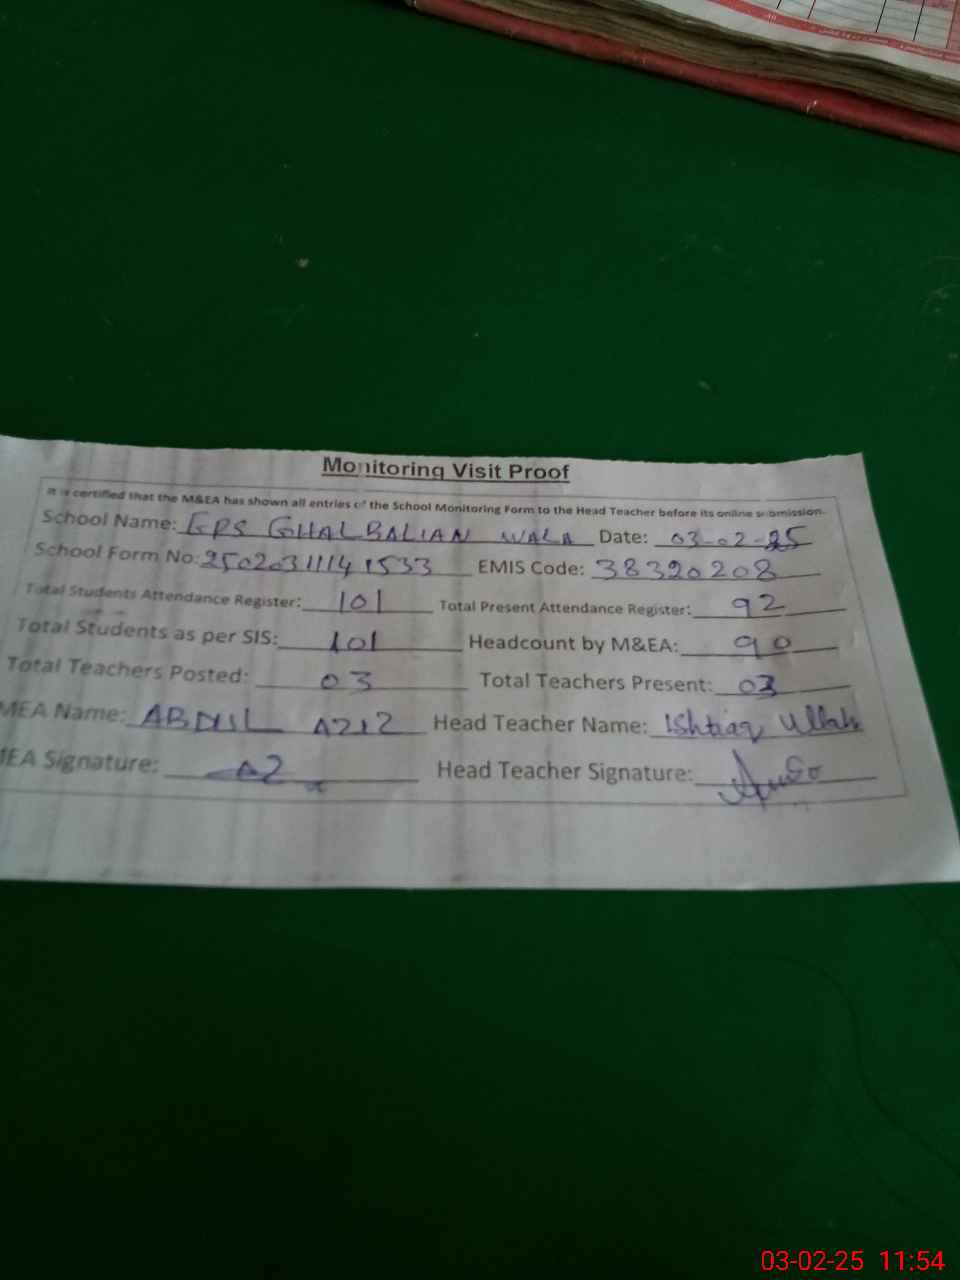 Monitoring Visit Proof
It is certified that the M&EA has shown all entries of the School Monitoring Form to the Head Teacher before its online submission.
School Name: GPS GHALBALIAN WALA Date: 03-02-25
School Form No: 250203111141533 EMIS Code: 38320208
Total Students Attendance Register: 101 Total Present Attendance Register: 92
Total Students as per SIS: 101 Headcount by M&EA: 90
Total Teachers Posted: 03 Total Teachers Present: 03
MEA Name: ABDUL AZIZ Head Teacher Name: Ishtiaq Ullah
MEA Signature: AZ Head Teacher Signature:
03-02-25 11:54